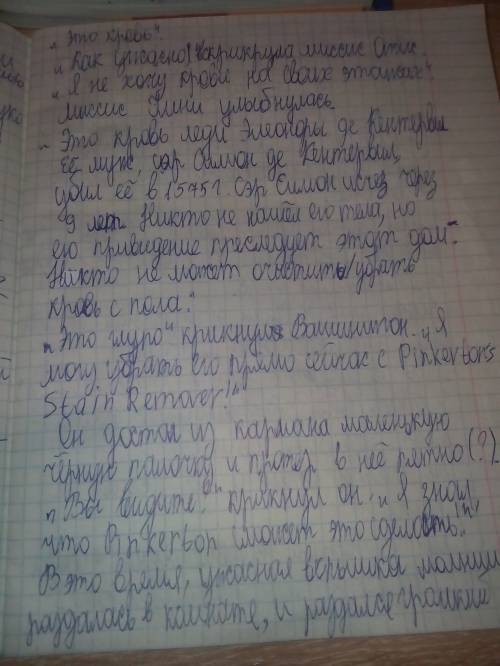 „Это кровь".
„Как ужасно" вскрикнула миссис Отис.
„Я не хочу крови на своих этажах".
Миссис Амни улыбнулась.
„Это кровь леди Элеоноры де Кентервил
Её муж, сэр Симон де Кентервил,
убил её в 1575 г. Сэр Симон исчез через
9 лет. Никто не нашёл его тела, но
его привидение преследует этот дом.
Никто не может очистить/убрать
кровь с пола."
„Это глупо" крикнул Вашингтон. „Я
могу убрать его прямо сейчас с Pinkerton's
Stain Remover!"
Он достал из кармана маленькую
чёрную палочку и протёр в неё пятно (?)
„Вы видите!" крикнул он. „Я знал
что Pinkerton сможет это сделать!"
В это время, ужасная вспышка молнии
раздалась в комнате, и раздался громкий